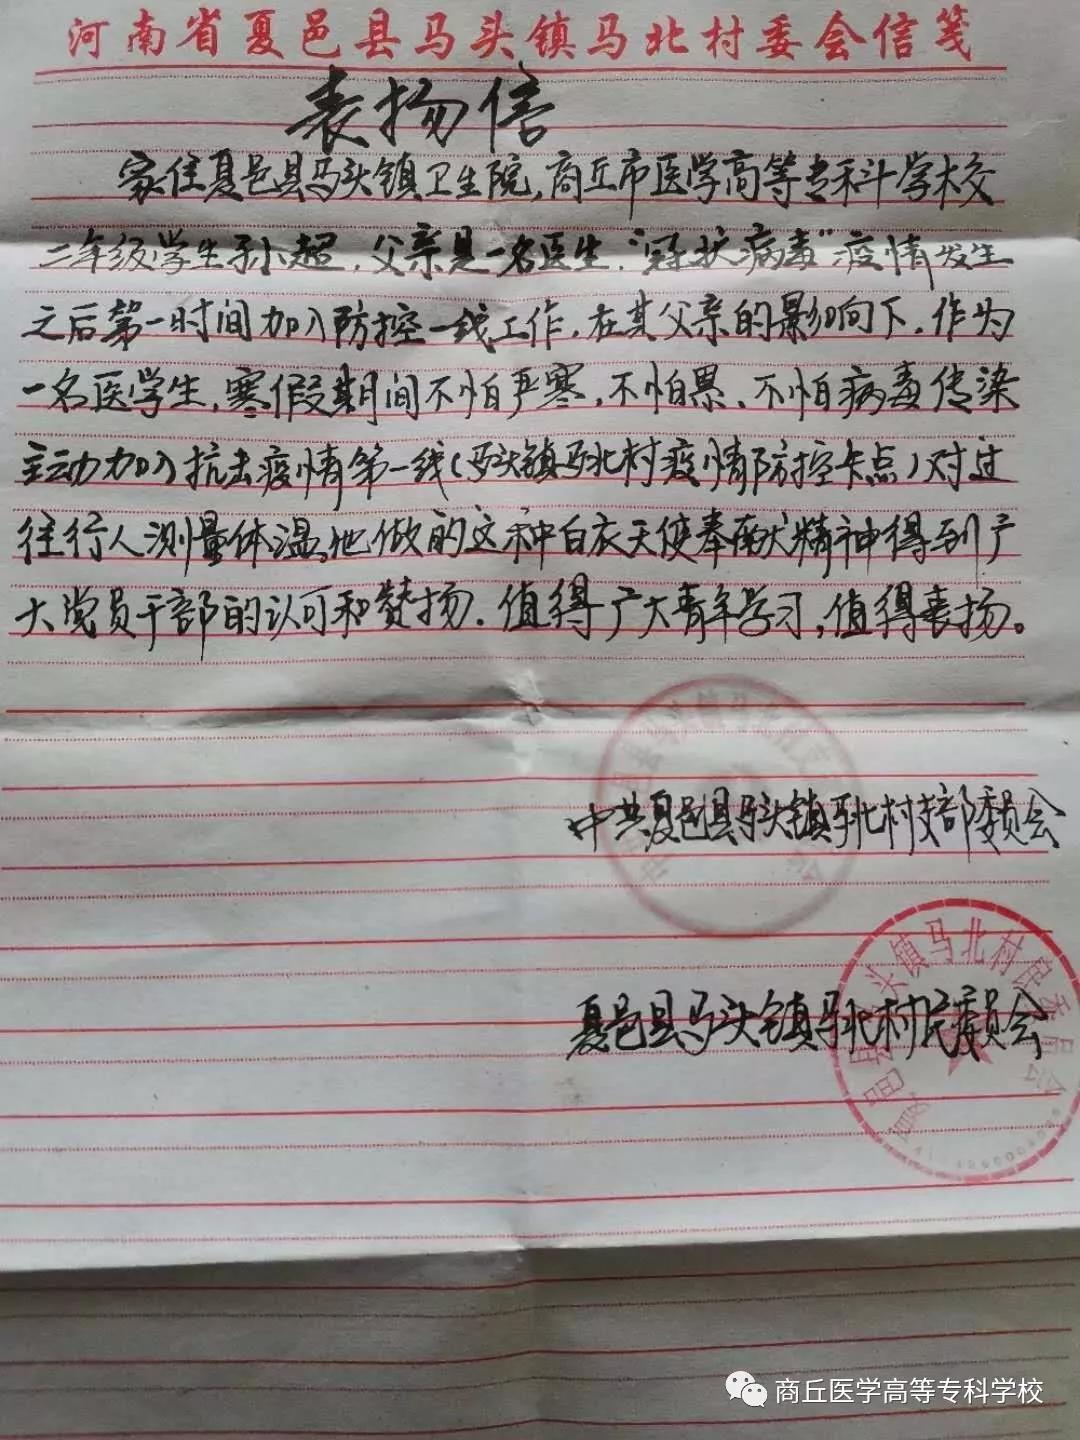 河南省夏邑县马头镇马北村委会信笺
表扬信
家住夏邑县马头镇卫生院，商丘市医学高等专科学校
二年级学生孙超，父亲是一名医生，“冠状病毒”疫情发生
之后第一时间加入防控一线工作，在其父亲的影响下，作为
一名医学生，寒假期间不怕严寒，不怕累、不怕病毒传染
主动加入抗击疫情第一线（马头镇马北村疫情防控卡点）对过
往行人测量体温，他做的这种白衣天使奉献精神得到广
大党员干部的认可和赞扬。值得广大青年学习，值得表扬。
中共夏邑县马头镇马北村支部委员会
夏邑县马头镇马北村民委员会
夏邑县马头镇马北村民委员会
商丘医学高等专科学校